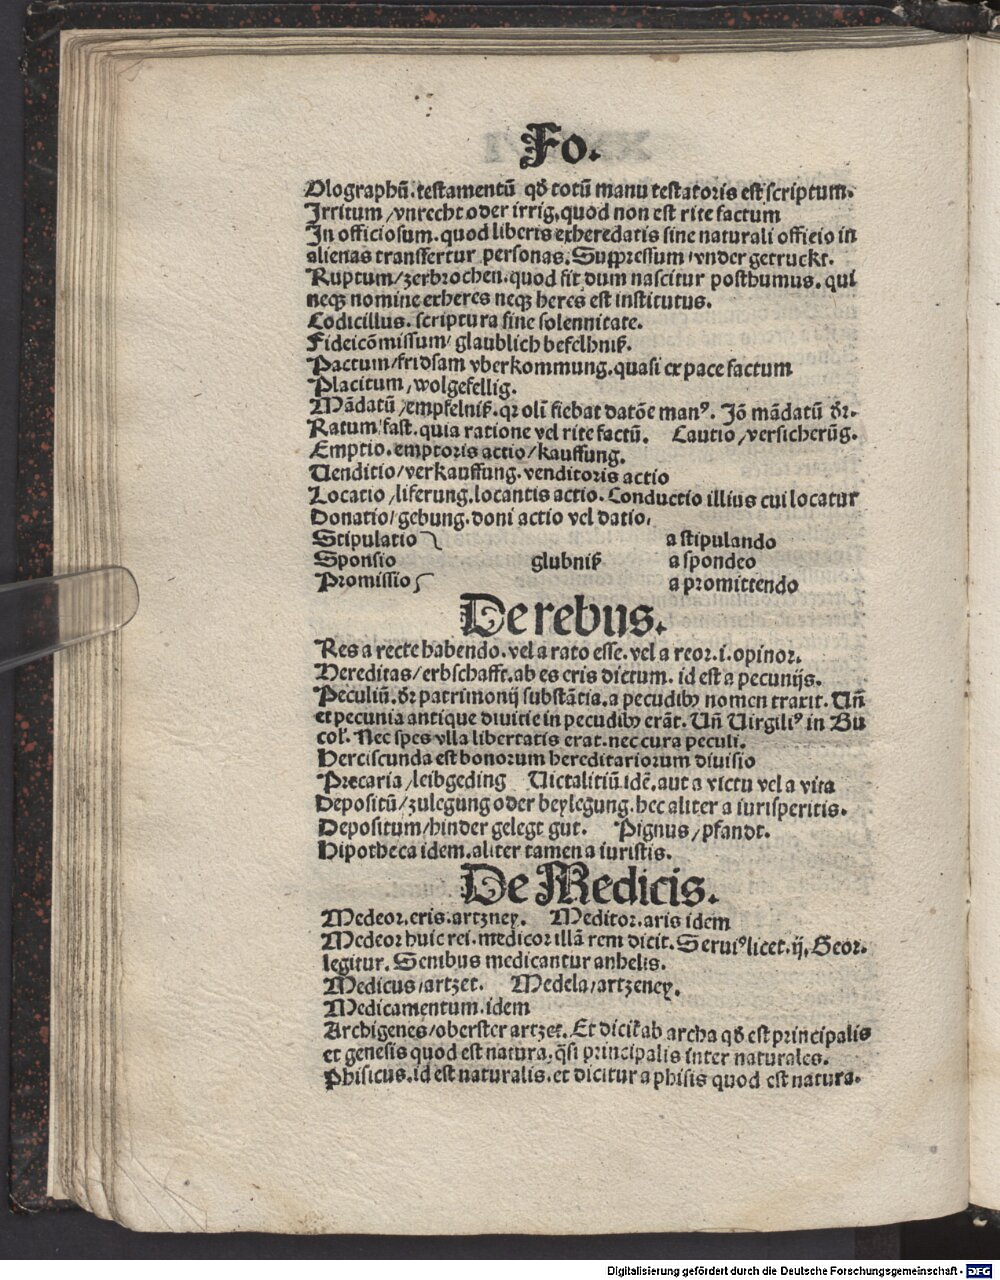 Fo.
Olographū. testamentū qđ totū manu testatoris est scriptum.
Irritum / vnrecht oder irrig, quod non est rite factum
In officiosum. quod liberis exheredatis sine naturali officio in
alienas transfertur personas. Suppressum / vnder getruckt.
Ruptum / zerbrochen. quod fit dum nascitur posthumus. qui
neqꝫ nomine exheres neqꝫ heres est institutus.
Codicillus. scriptura sine solennitate.
Fideicōmissum / glaublich befelhniß.
Pactum / fridsam vberkommung. quasi ex pace factum
Placitum / wolgefellig.
Mādatū / empfelniß. qꝛ oli͂ fiebat datōe manꝰ. Jō mādatū dr̄.
Ratum / fast. quia ratione vel rite factū. Cautio / versicherūg.
Emptio. emptoris actio / kauffung.
Uenditio / verkauffung. venditoris actio
Locatio / liferung. locantis actio. Conductio illius cui locatur
Donatio / gebung. doni actio vel datio.
Stipulatio a stipulando
Sponsio glubniß a spondeo
Promissio a promittendo
De rebus.
Res a recte habendo. vel a rato esse. vel a reor. i. opinor.
Hereditas / erbschafft. ab es eris dictum. id est a pecunijs.
Peculiū. dr̄ patrimonij substātia. a pecudibꝫ nomen traxit. Uñ
et pecunia antique diuitie in pecudibꝫ erāt. Uñ Uirgiliꝰ in Bu
col̄. Nec spes vlla libertatis erat. nec cura peculi.
Herciscunda est bonorum hereditariorum diuisio
Precaria / leibgeding Uictalitiū idē. aut a victu vel a vita
Depositū / zulegung oder beylegung. hec aliter a iurisperitis.
Depositum / hinder gelegt gut. Pignus / pfandt.
Hipotheca idem. aliter tamen a iuristis.
De Medicis.
Medeor. eris. artzney. Meditor. aris idem
Medeor huic rei. medicor illā rem dicit. Seruiꝰ licet. ij. Geor.
legitur. Senibus medicantur anhelis.
Medicus / artzet. Medela / artzeney.
Medicamentum. idem
Archigenes / oberster artzet. Et dicit̄ ab archa qđ est principalis
et genesis quod est natura. q̄si principalis inter naturales.
Phisicus. id est naturalis. et dicitur a phisis quod est natura.
Digitalisierung gefördert durch die Deutsche Forschungsgemeinschaft - DFG